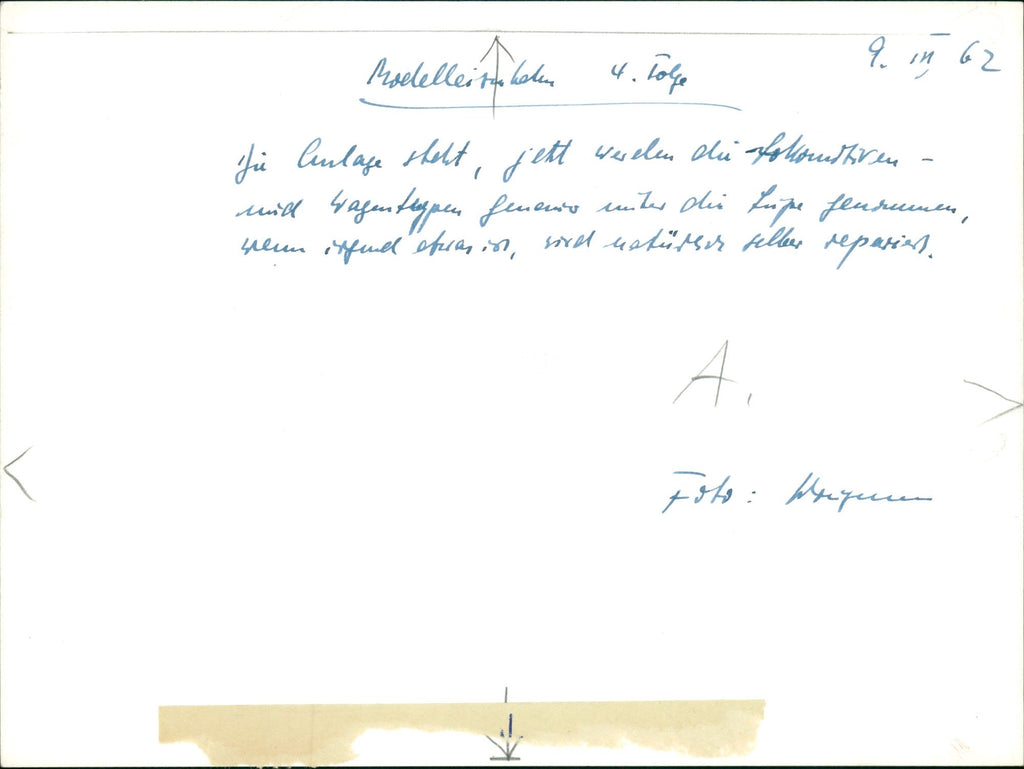 9. III 62
Modelleisenbahn 4. Folge
Die Anlage steht, jetzt werden die Lokomotiven -
und Wagentypen genau unter die Lupe genommen,
wenn irgend etwas ist, wird natürlich selber repariert.
A.
Foto: